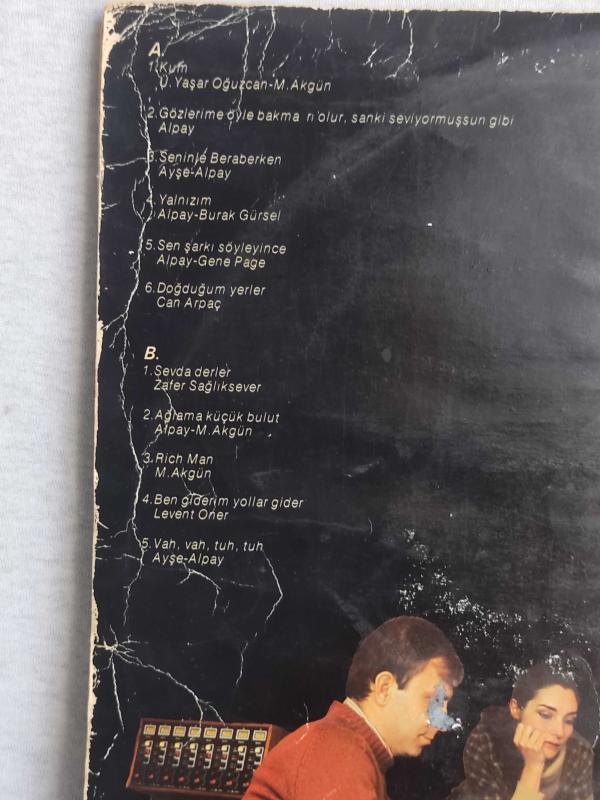 A.
1.Kum
Ü.Yaşar Oğuzcan-M.Akgün
2.Gözlerime öyle bakma n'olur, sanki seviyormuşsun gibi
Alpay
3.Seninle Beraberken
Ayşe-Alpay
4.Yalnızım
Alpay-Burak Gürsel
5.Sen şarkı söyleyince
Alpay-Gene Page
6.Doğduğum yerler
Can Arpaç
B.
1.Sevda derler
Zafer Sağlıksever
2.Ağlama küçük bulut
Alpay-M.Akgün
3.Rich Man
M.Akgün
4.Ben giderim yollar gider
Levent Öner
5.Vah, vah, tuh, tuh
Ayşe-Alpay